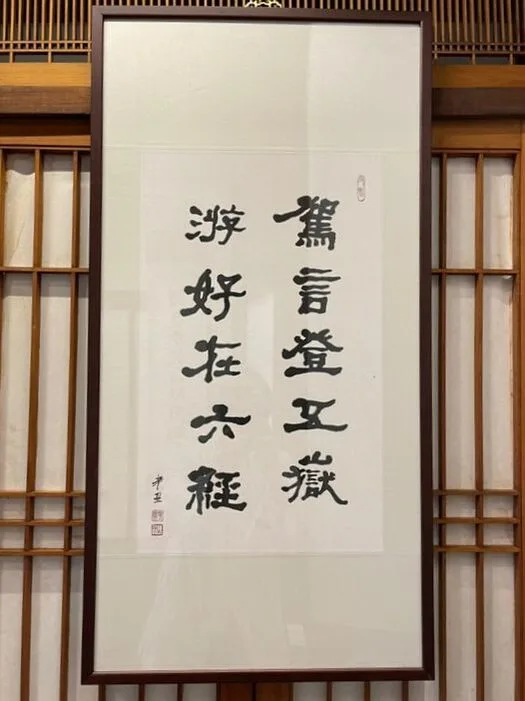 駕言登五嶽
游好在六經